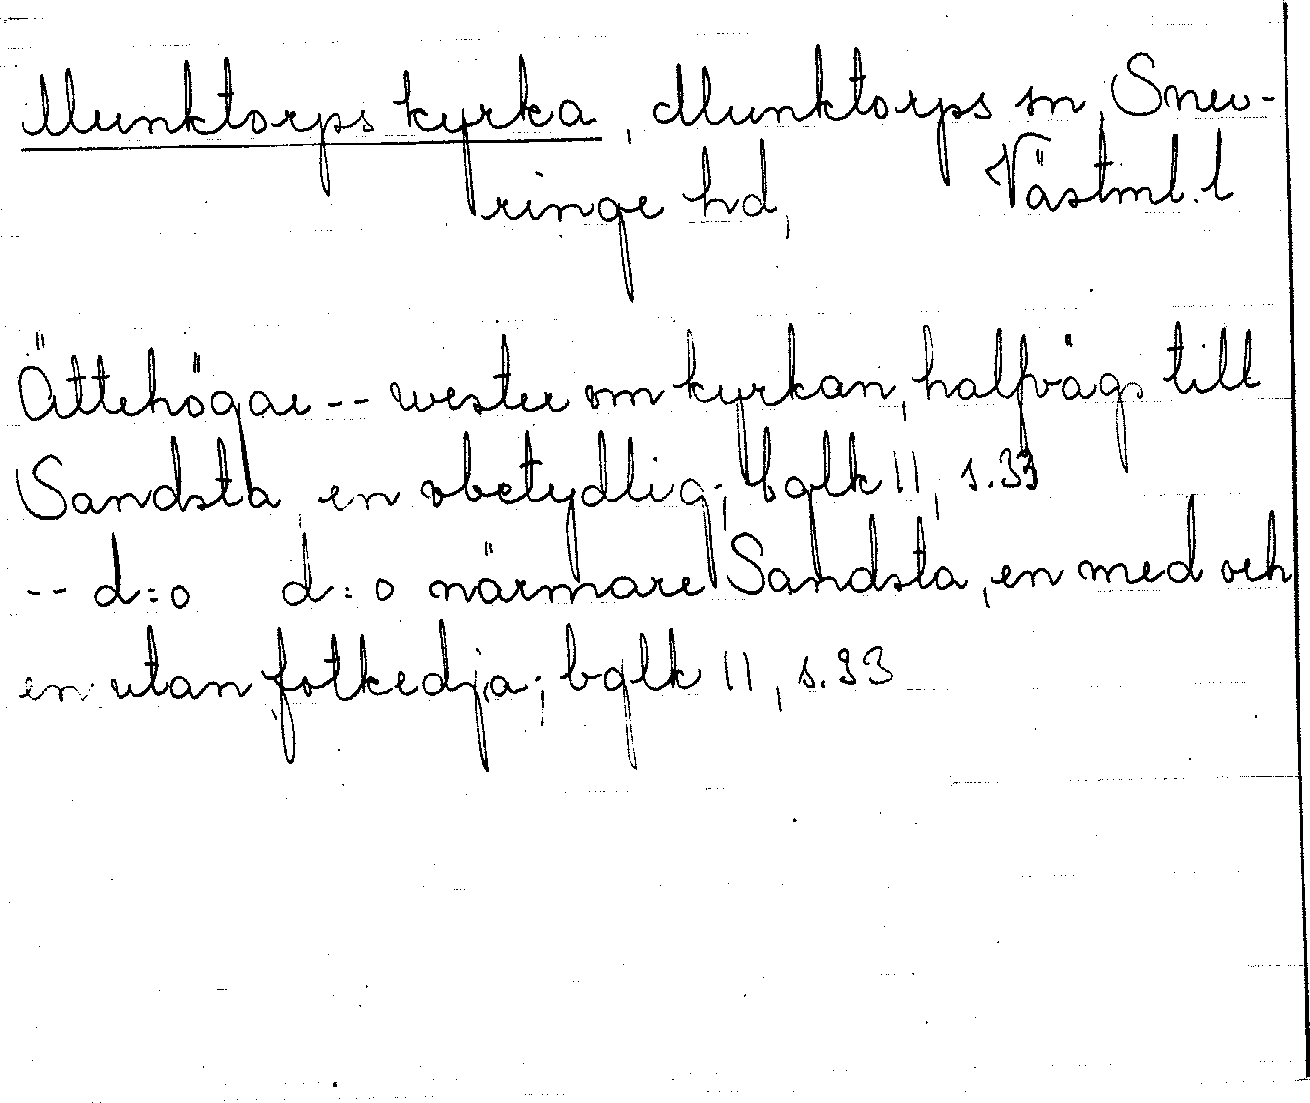 Munktorps kyrka, Munktorps sn, Snev-
ringe hd, Västml. l
Ättehögar -- wester om kyrkan, halfvägs till
Sandsta, en obetydlig; bglk II, s. 33
-- d:o d:o närmare Sandsta, en med och
en utan fotkedja; bglk II, s. 33